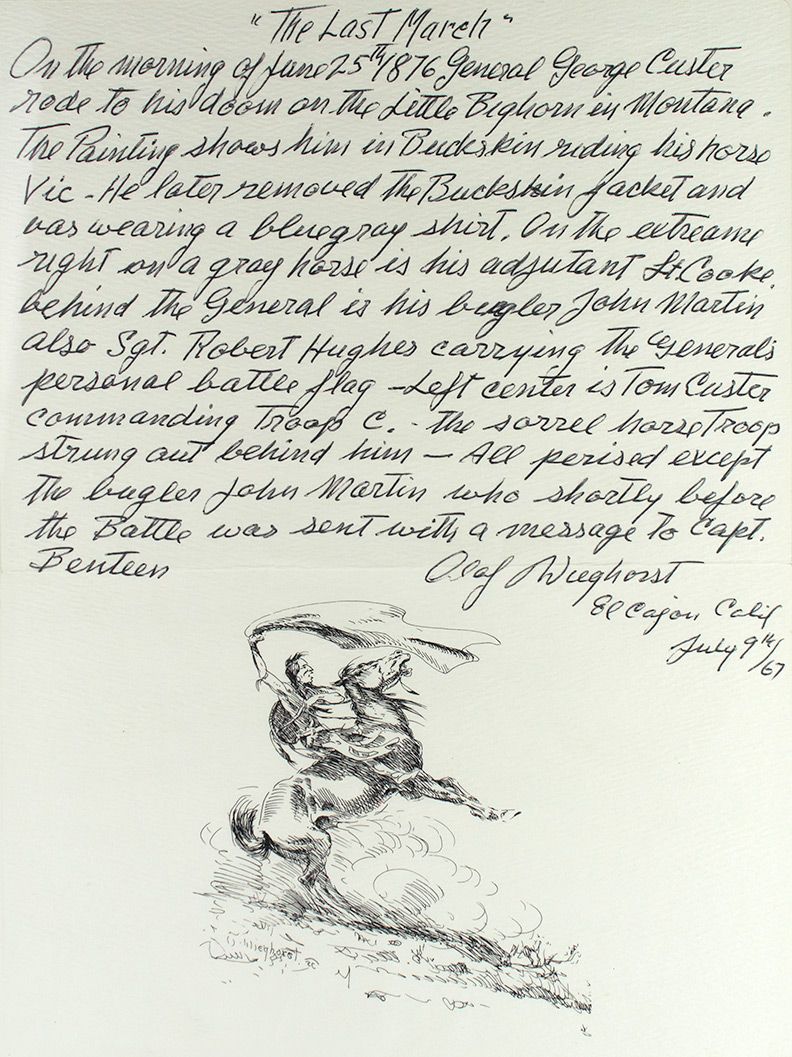 "The Last March"
On the morning of June 25th/1876 General George Custer
rode to his doom on the Little Bighorn in Montana.
The Painting shows him in Buckskin riding his horse
Vic - He later removed the Buckskin Jacket and
was wearing a bluegray shirt. On the extreame
right on a gray horse is his adjutant Lt. Cooke.
behind the General is his bugler John Martin
also Sgt. Robert Hughes carrying the Generals
personal battle flag - Left center is Tom Custer
commanding Troop C. - the sorrel horse Troop
strung out behind him — All perised except
the bugler John Martin who shortly before
the Battle was sent with a message to Capt.
Benteen
Olaf Wieghorst
El Cajon Calif
July 9th/67
O. Wieghorst